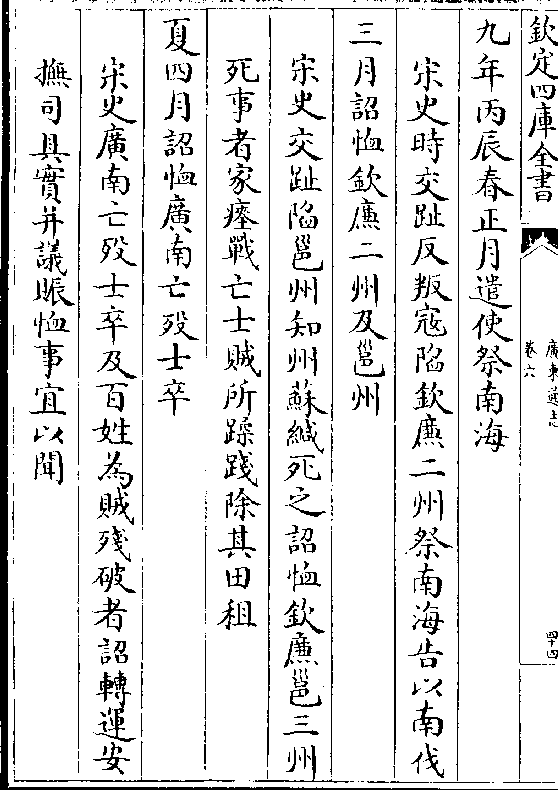 欽定四庫全書
廣東通志
卷六
四十四
九年丙辰春正月遣使祭南海
宋史時交趾反叛寇陷欽廉二州祭南海告以南伐
三月詔恤欽廉二州及邕州
宋史交趾陷邕州知州蘇緘死之詔恤欽廉邕三州
死事者家瘞戰亡士賊所蹂踐除其田租
夏四月詔恤廣南亡歿士卒
宋史廣南亡歿士卒及百姓為賊殘破者詔轉運安
撫司具實并議賑恤事宜以聞